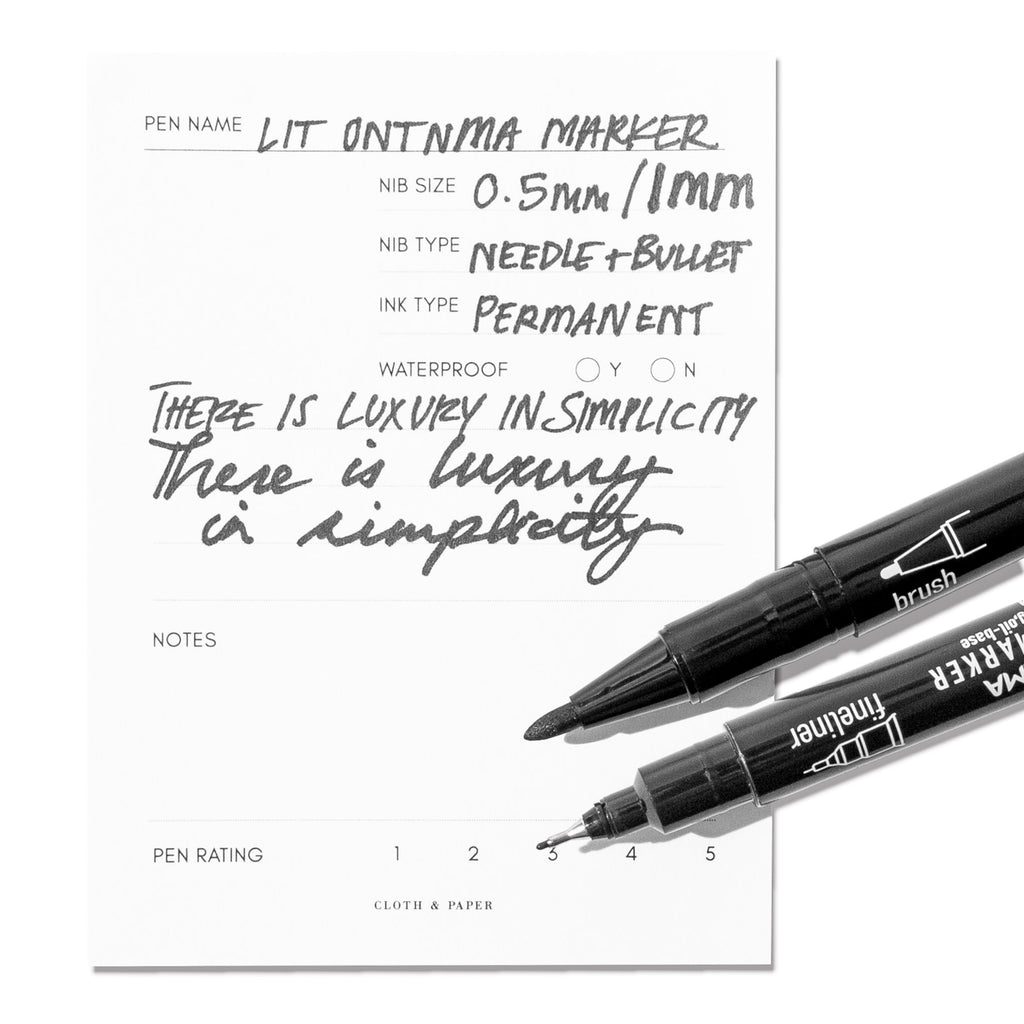 PEN NAME LIT ONTNMA MARKER
NIB SIZE 0.5mm/1mm
NIB TYPE NEEDLE+BULLET
INK TYPE PERMANENT
WATERPROOF Y N
THERE IS LUXURY IN SIMPLICITY
There is luxury
in simplicity
brush
NOTES
oil-base
MARKER
MA
fineliner
PEN RATING 1 2 3 4 5
CLOTH & PAPER